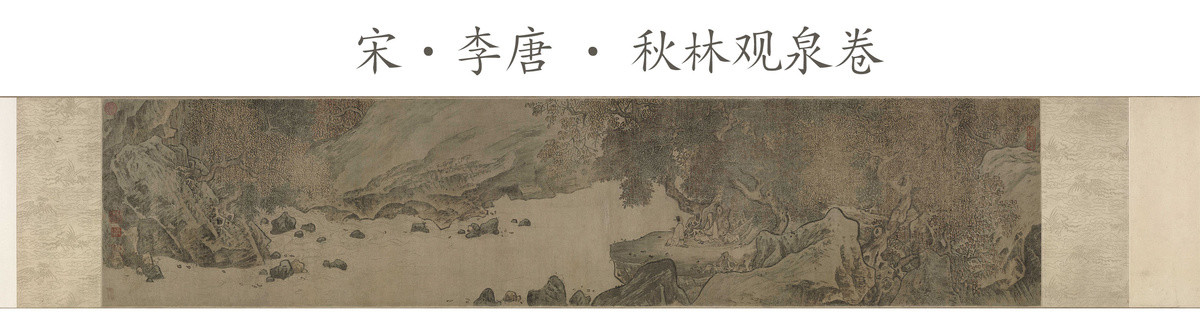 宋·李唐·秋林观泉卷